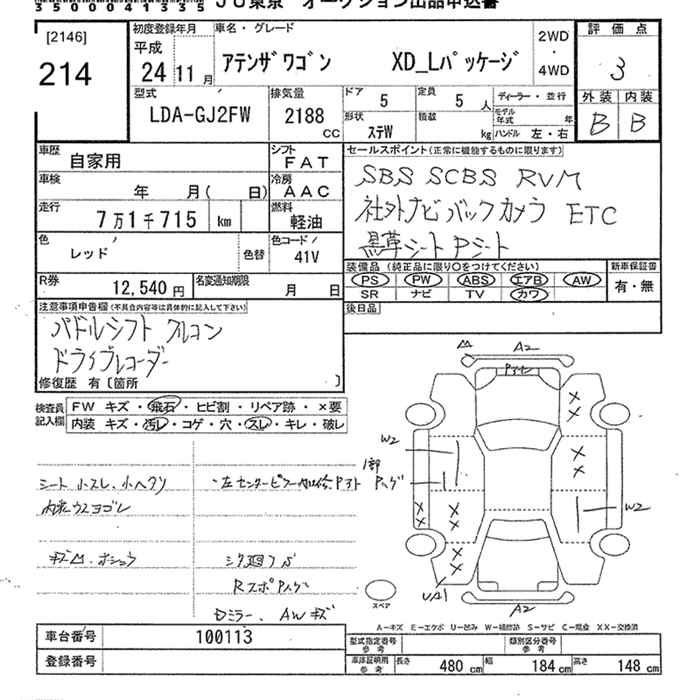 35000041535 JU東京 オークション出品申込書
[2146]
214
初度登録年月
平成
24年11月
車名・グレード
アテンザワゴン XD_Lパッケージ
2WD
・
4WD
評価点
3
外装 内装
B B
型式
LDA-GJ2FW
排気量
2188
CC
ドア 5
定員 5人
ディーラー・並行
形状 ステW
積載 kg
モデル年式 年
ハンドル 左・右
車歴 自家用
シフト FAT
車検 年 月( 日)
冷房 AAC
走行 7万1千715 km
燃料 軽油
色 レッド 色替
色コード 41V
R券 12,540円
名変通知期限 月 日
セールスポイント(正常に機能するものに限ります)
SBS SCBS RVM
社外ナビ バックカメラ ETC
黒革シート Pシート
装備品(純正品に限り○をつけてください)
PS PW ABS エアB AW
SR ナビ TV カワ
新車保証書
有・無
後日品
注意事項申告欄(不具合内容等は具体的に記入して下さい)
パドルシフト クルコン
ドライブレコーダー
修復歴 有〔箇所 〕
検査員記入欄
FW キズ・飛石・ヒビ割・リペア跡・×要
内装 キズ・汚レ・コゲ・穴・スレ・キレ・破レ
シート小スレ、小ヘタリ
内装ウスヨゴレ
左センターピラー
Rスポ
Dミラー、AWキズ
A2
W2
XX
XX
XX
XX
XX
W2
UA1
A2
スペア
A-キズ E-エクボ U-凹み W-補修跡 S-サビ C-腐食 XX-交換済
車台番号 100113
登録番号
型式指定番号参考
類別区分番号参考
車庫証明用参考 長さ 480cm 幅 184cm 高さ 148cm